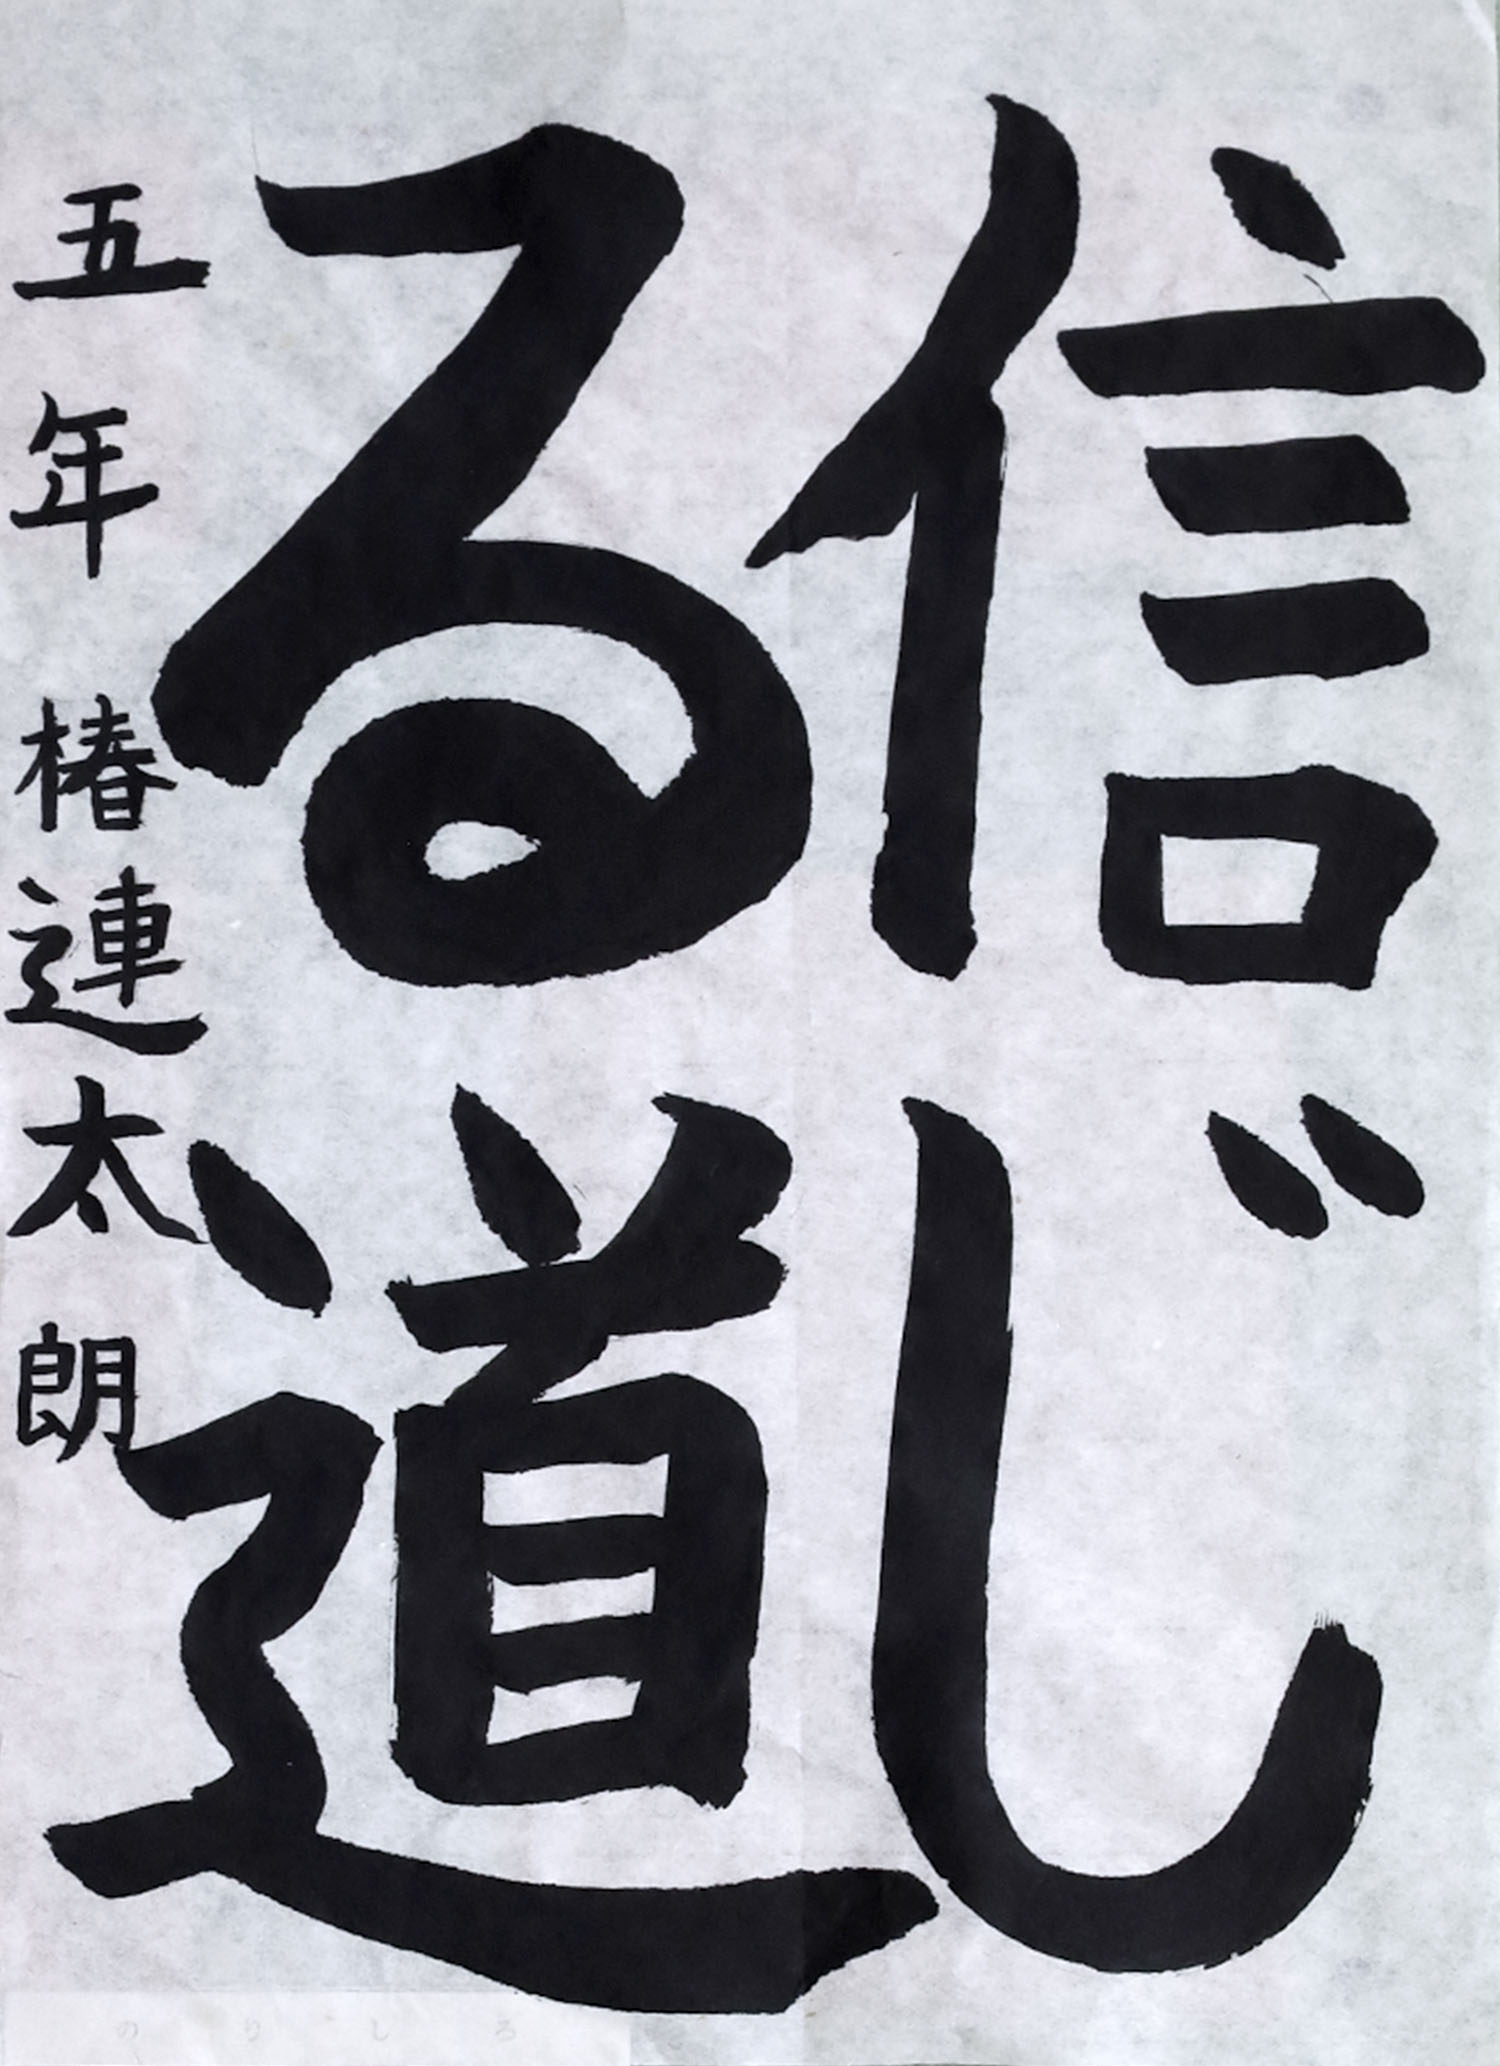 信じ
る道
五年 椿連太朗
のりしろ